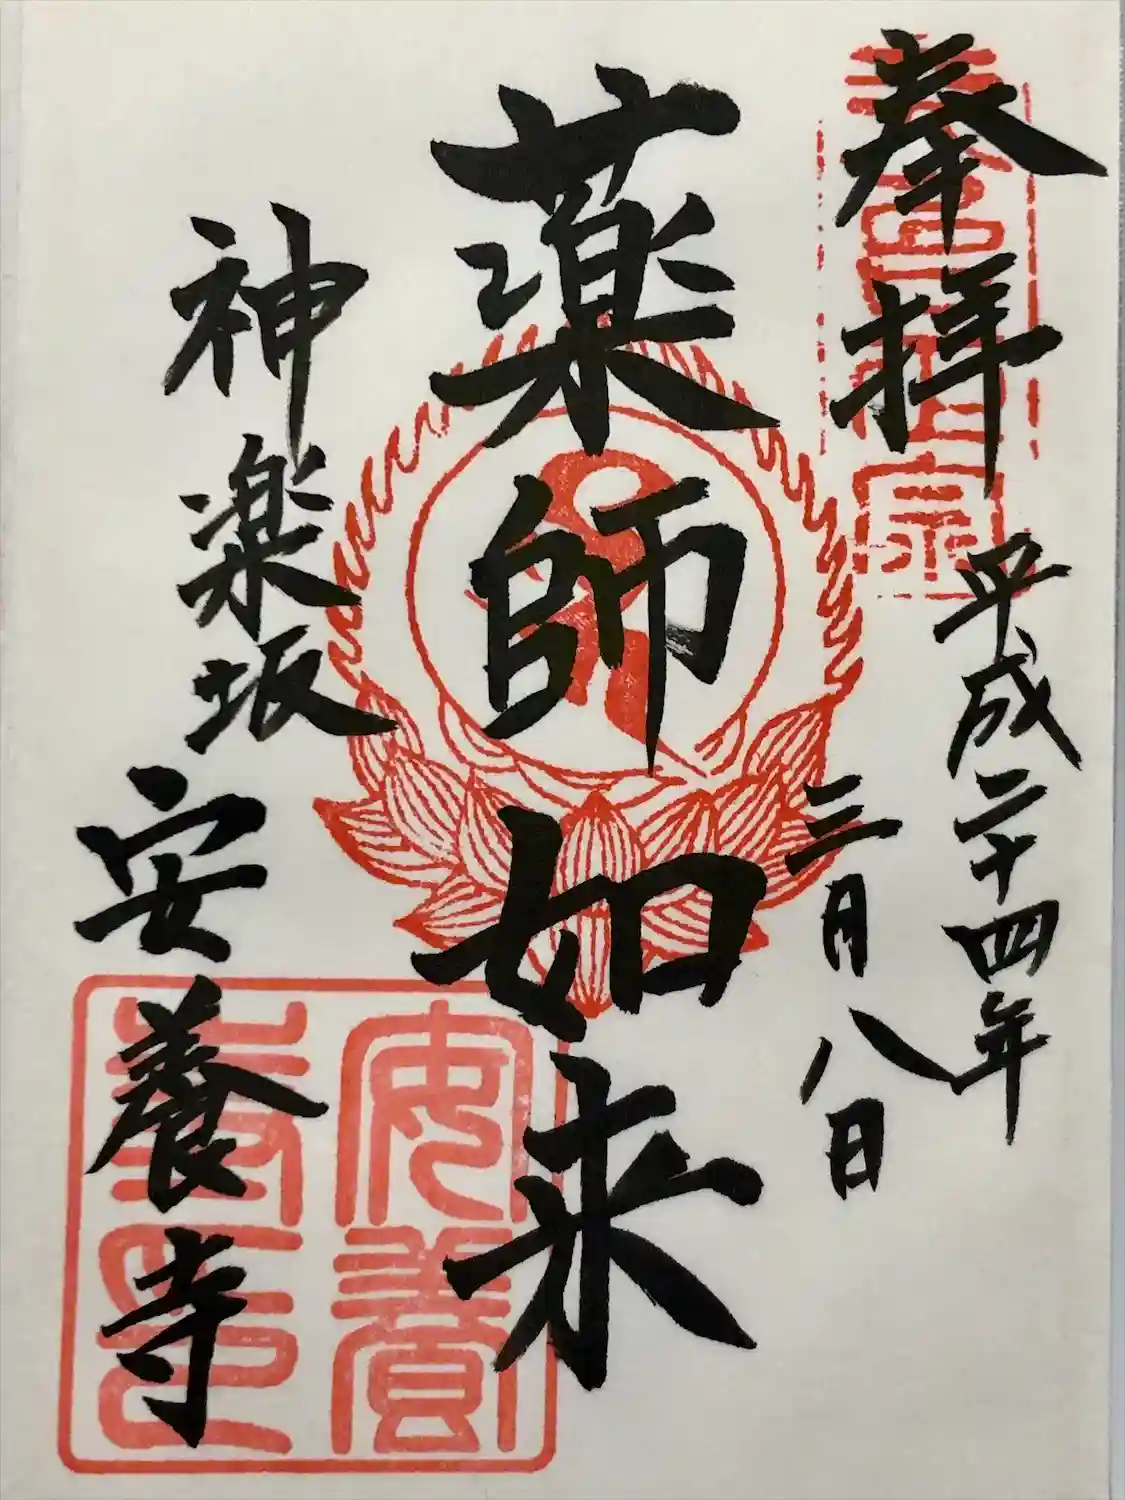 奉拝
平成二十四年
三月八日
薬師如来
神楽坂
安養寺
安養
寺印